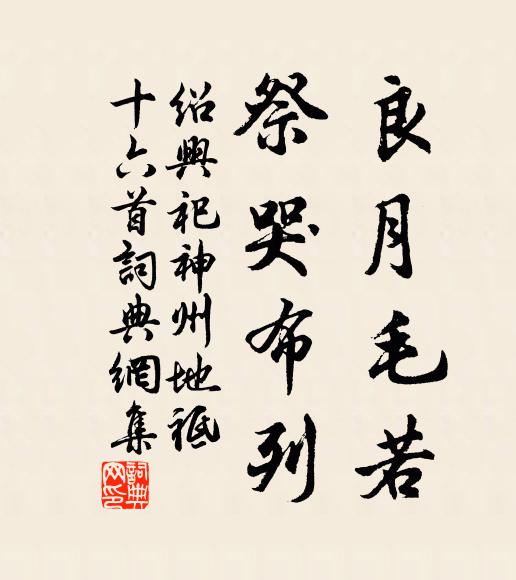 良月毛若
祭哭布列
绍興祀神州地祗
十六首詞典網集
詞典
网印